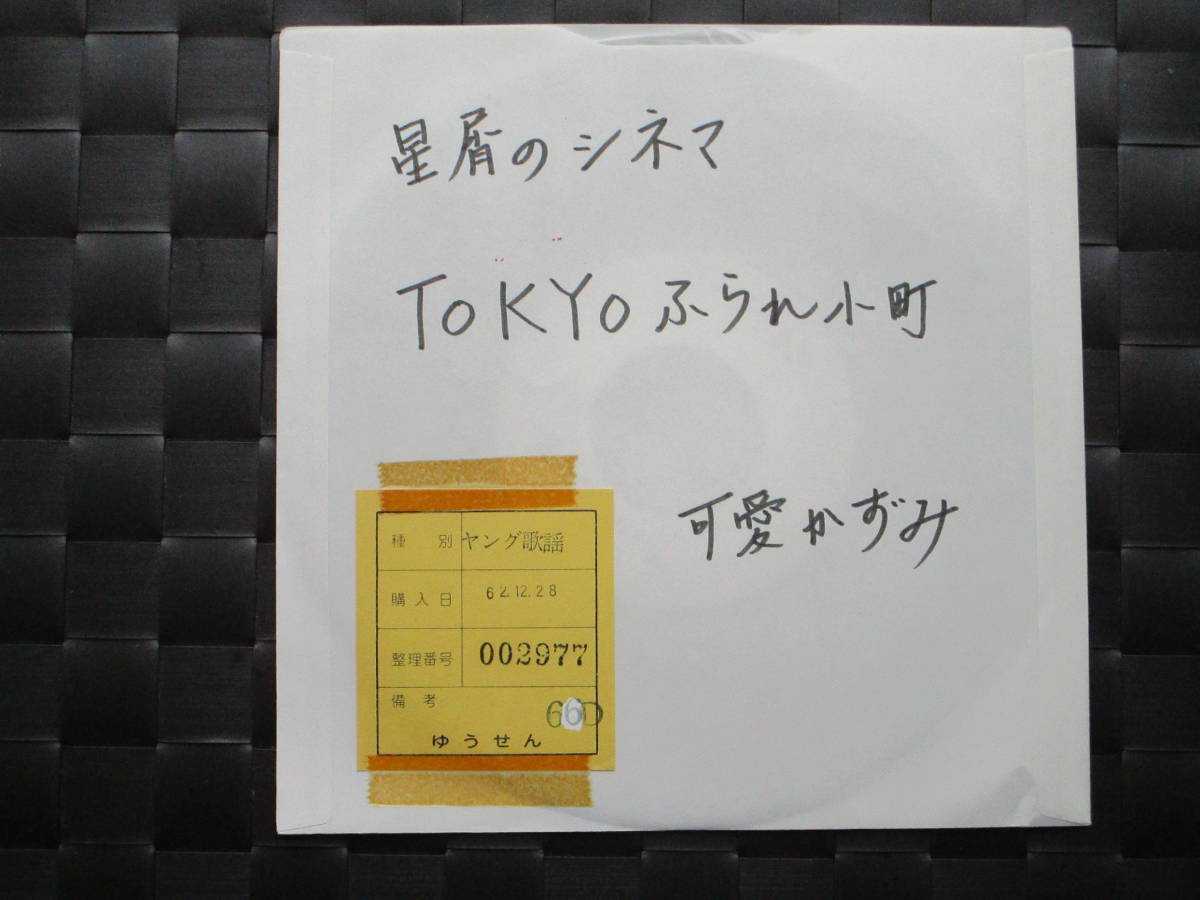 星屑のシネマ
TOKYOふられ小町
可愛かずみ
種別 ヤング歌謡
購入日 62.12.28
整理番号 002977
備考
66D
ゆうせん